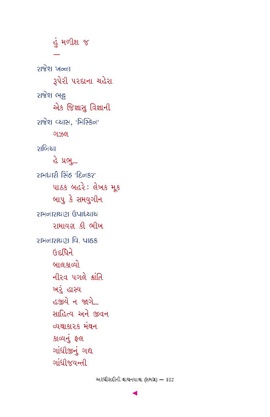 હું મળીશ જ
—
રાજેશ ખન્ના
રૂપેરી પરદાના ચહેરા
રાજેશ ભટ્ટ
એક જિજ્ઞાસુ વિજ્ઞાની
રાજેશ વ્યાસ, 'મિસ્કિન'
ગઝલ
રાબિયા
હે પ્રભુ...
રામધારી સિંહ 'દિનકર'
પાઠક બહરે : લેખક મૂક
બાપુ કે સમયુગીન
રામનારાયણ ઉપાધ્યાય
રામાયણ કી ભીખ
રામનારાયણ વિ. પાઠક
ઉદધિને
બાલકાવ્યો
નીરવ પગલે ક્રાંતિ
ખરું હાસ્ય
હજીયે ન જાગે...
સાહિત્ય અને જીવન
વ્યથાકારક મંથન
કાવ્યનું ફલ
ગાંધીજીનું ગદ્ય
ગાંધીજયન્તી
અરધી સદીની વાચનયાત્રા (સમગ્ર) —